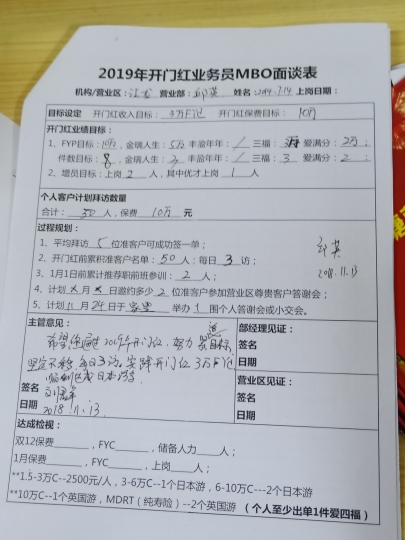 2019年开门红业务员MBO面谈表
机构/营业区: 营业部:邱英 姓名: 2014.7.14 上岗日期:
目标设定 开门红收入目标:3万FYC 开门红保费目标:10万
开门红业绩目标:
1、FYP目标:10万,金瑞人生:5万 丰盈年年:/ 三福:3万 爱满分:2万;
件数目标:8,金瑞人生:3 丰盈年年:/ 三福:3 爱满分:2;
2、增员目标:上岗2人,其中优才上岗1人
个人客户计划拜访数量
合计:50人,保费10万元
过程规划:
1、平均拜访5位准客户可成功签一单;
2、开门红前累积准客户名单:50人;每日3访;
3、1月1日前累计推荐职前班参训:2人;
4、计划 月 日邀约多少2位准客户参加营业区尊贵客户答谢会;
5、计划11月24日于 举办1围个人答谢会或小交会。
邱英
2018.11.13
主管意见:
希望你通过2019年开门红,努力 目标,
坚定不移每日3访。实际开门红3万FYC
日本游学
签名
日期 2018.11.13
部经理见证:
签名
日期
营业区见证:
签名
日期
达成检视:
双12保费______,FYC______,储备人力____人;
1月保费______,FYC______,上岗____人;
**1.5-3万C--2500元/人,3-6万C--1个日本游,6-10万C---2个日本游
**10万C--1个英国游,MDRT(纯寿险)--2个英国游 (个人至少出单1件爱四福)